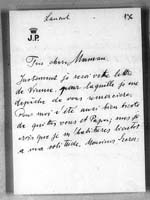 J.P.
Très chère Maman
Justement je reçu votre lettre
de Vienne pour laquelle je me
dépêche de vous remercier.
Pour moi j'été aussi bien triste
de quitter vous et Papa, mais je
crois que je m'habituerai bientôt
a ma solitude. Monsieur